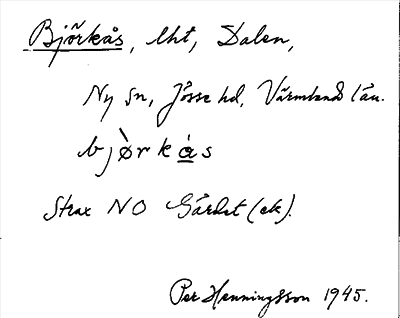 Björkås, lht, Dalen,
Ny sn, Jösse hd, Värmlands län.
bjòrkȧs
Strax NO Gårdet (ek).
Per Henningsson 1945.